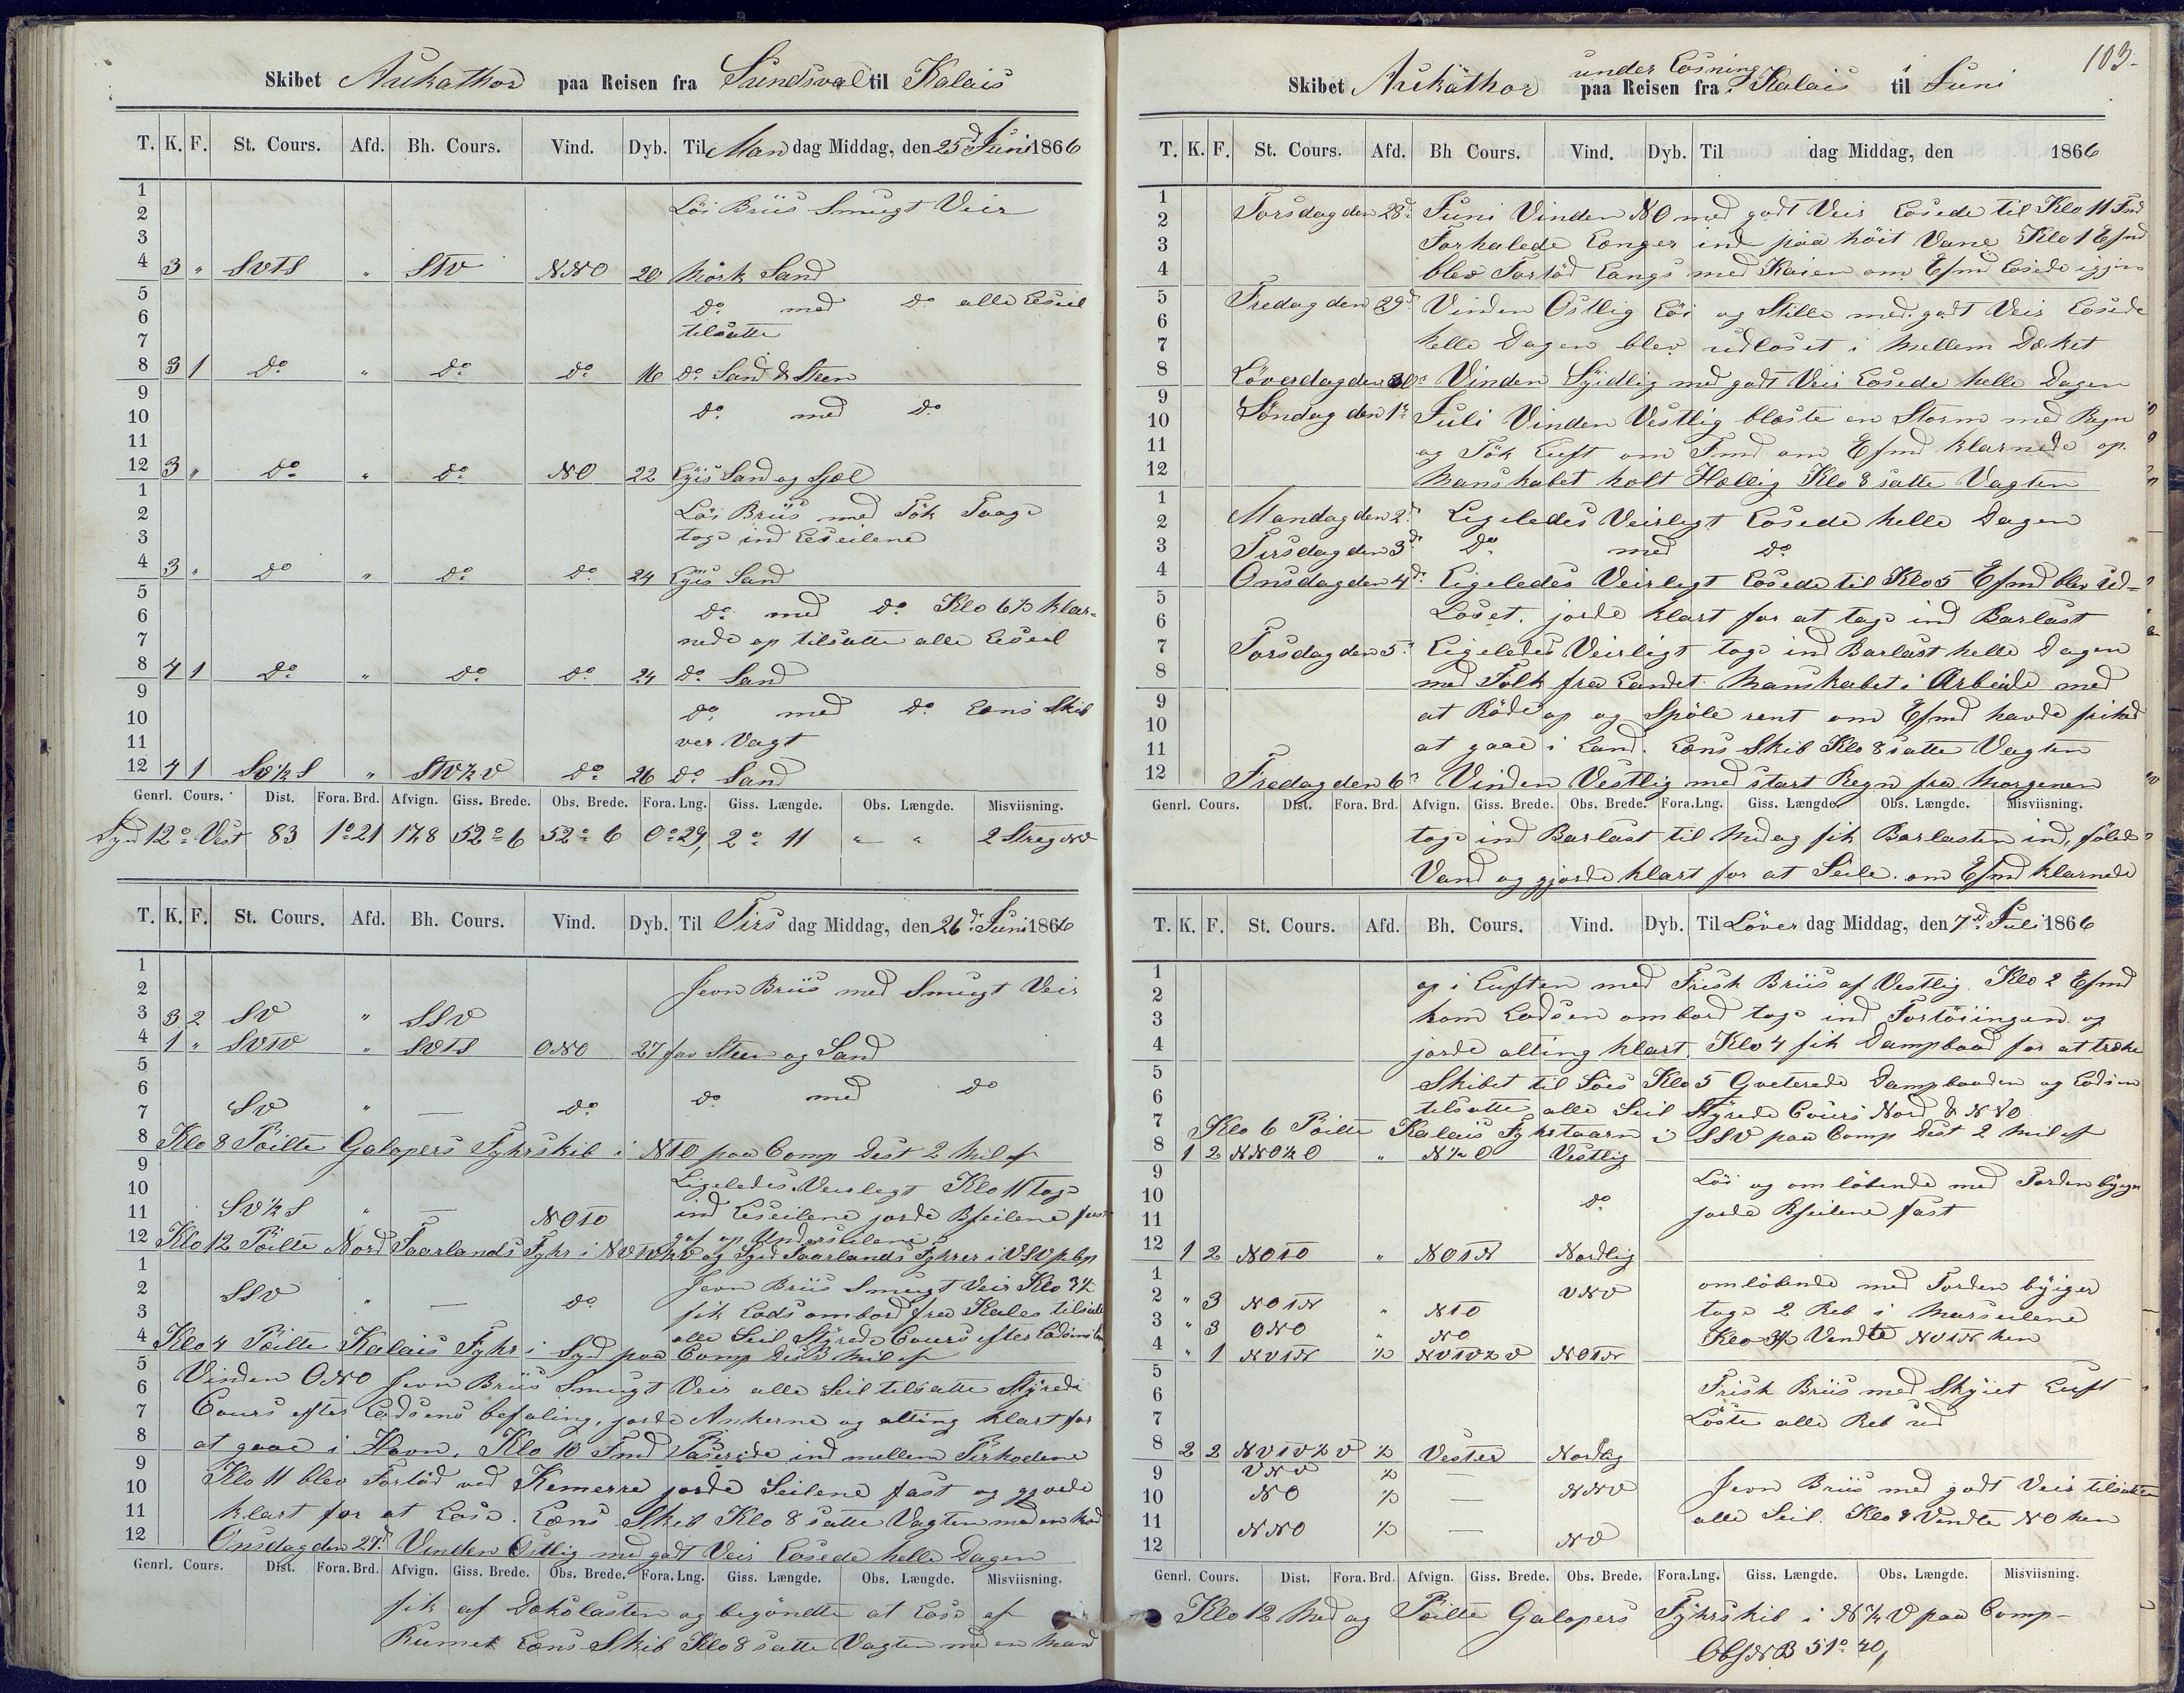 Skibet Arckathor paa Reisen fra Sundsval til Kalais
T. K. F. St. Cours. Afd. Bh. Cours. Vind. Dyb. Til Man dag Middag, den 25d Juni 1866
1
2 Löi Briis Smugt Veir
3
4 3 " SVTS " STV NNO 20 Mörk Sand
5 Do med Do alle Leseil
6 tilsatte
7
8 3 1 Do " Do Do 16 Do Sand & Steen
9
10 Do med Do
11
12 3 " Do " Do NO 22 Lyis Sand og Sjæl
1
2 Löi Briis med Tök Taage
3 toge ind Leseilene
4 3 " Do " Do Do 24 Lyis Sand
5
6 Do med Do Klo 6½ klar-
7 nede op tilsatte alle Leseil
8 4 1 Do " Do Do 24 Do Sand
9
10 Do med Do Læns Skib
11 ver Vagt
12 4 1 SV½S " STV½V Do 26 Do Sand
Genrl. Cours. Dist. Fora. Brd. Afvign. Giss. Brede. Obs. Brede. Fora. Lng. Giss. Længde. Obs. Længde. Misviisning.
Syd 12° Vest 83 1°21 17,8 52° 6 52° 6 0°29, 2° 11 " " 2 Streg NV
T. K. F. St. Cours. Afd. Bh. Cours. Vind. Dyb. Til Tirs dag Middag, den 26d Juni 1866
1
2 Jevn Briis med Smugt Veir
3 3 2 SV " SSV
4 1 " SVTV " SVTS ONO 27 fav Steen og Sand
5
6 Do med Do
7 SV " — Do
8 Klo 8 Pöilte Galopers Fyhrskib i NTO paa Comp Dist 2 Mil af
9
10 Ligeledes Veirlegt Klo 11 toge
11 SV½S " — NOTO ind Leseilene jorde Bseilene fast
gaf op Underseilene
12 Klo 12 Pöilte Nord Faarlands Fyhr i NVTV½V og Syd Faarlands Fyhrer i VSV p Cmp
1
2 SSV " — Do Jevn Briis Smugt Veir Klo 3½
3 fik Lods ombord fra Kales tilsatte
4 alle Seil Styrede Cours efter Lodsens
Klo 4 Pöilte Kalais Fyhr i Syd paa Comp Dist 3 Mil af
5 Vinden ONO Jevn Briis Smugt Veir alle Seil tilsatte Styrede
6
7 Cours efter Lodsens befaling, jorde Ankerne og alting klart for
8 at gaae i Havn. Klo 10 Fmd Paserede ind mellem
9
10 Klo 11 blev Fortöd ved jorde Seilene fast og gjorde
11 klart for at Losse. Læns Skib Klo 8 satte Vagten med en Mand
12 Onsdag den 27d Vinden Östlig med godt Veir Losede helle Dagen
Genrl. Cours. Dist. Fora. Brd. Afvign. Giss. Brede. Obs. Brede. Fora. Lng. Giss. Længde. Obs. Længde. Misviisning.
fik af Dækslasten og begöndte at Lose af
Rumet Læns Skib Klo 8 satte Vagten med en Mand
103.
under Losning
Skibet Arckathor paa Reisen fra i Kalais til i Juni
T. K. F. St. Cours. Afd. Bh Cours. Vind. Dyb. Til dag Middag, den 1866
1
2 Torsdag den 28d Juni Vinden NO med godt Veir Losede til Klo 11 Fmd
3 Forhalede længer ind paa höit Vane Klo 1 Efmd
4 blev Fortöd langs med Kaien om Efmd Losede igjen
5 Fredag den 29d Vinden Östlig Löi og Stille med godt Veir Losede
6
7 helle Dagen blev udloset i mellem Dæket
8 Löverdag den 30d Vinden Syidlig med godt Veir Losede helle Dagen
9
10 Söndag den 1d Juli Vinden Vestlig blæste en Storm med Regn
11 og Tök Luft om Fmd om Efmd klarnede op.
12 Manskabet holt Hællig Klo 8 satte Vagten
1
2 Mandag den 2d Ligeledes Veirlegt Losede helle Dagen
3 Tirsdag den 3d Do med Do
4 Onsdag den 4d Ligeledes Veirlegt Losede til Klo 5 Efmd blev ud-
5
6 Loset. jorde klart for at tage ind Barlast
7 Torsdag den 5d Ligeledes Veirligt toge ind Barlast helle Dagen
8 med Folk fra Landet Manskabet i Arbeide med
9
10 at Röde op og Spöle rent om Efmd havde frihed
11 at gaae i Land. Læns Skib Klo 8 satte Vagten
12 Fredag den 6d Vinden Vestlig med stærk Regn fra Morgenen
Genrl. Cours. Dist. Fora. Brd. Afvign. Giss. Brede. Obs. Brede. Fora. Lng. Giss. Længde. Obs. Længde. Misviisning.
toge ind Barlast til Midag fik Barlasten ind, fölede
Vand og gjorde klart for at Seile. om Efmd klarnede
T. K. F. St. Cours. Afd. Bh. Cours. Vind. Dyb. Til Löver dag Middag, den 7d Juli 1866
1
2 op i Luften med Frisk Briis af Vestlig. Klo 2 Efmd
3 kom Lodsen ombord toge ind Fortöiingen og
4 jorde alting klart. Klo 4 fik Dampbaad for at træke
5 Skibet til Söes Klo 5 Qveterede Dampbaaden og Lodsen
6 tilsatte alle Seil Styrede Cours Nord & NNO
7 Klo 6 Pöilte Kalais Fyhrtaarn i SSV paa Comp Dist 2 Mil af
8 1 2 NNO½O " N½O Vestlig
9 Löi og omlöbende med Torden byger
10 Do jorde Bseilene fast
11
12 1 2 NOTO " NOTN Nordlig
1 omlöbende med Torden byiger
2 " 3 NOTN " NTO VNV toge 2 Reb i Marseilene
3 " 3 ONO " NO Klo 3½ Vendte NVTN hen
4 " 1 NVTN ½ NVTV½V NOTN
5
6 Frisk Briis med Skyiet Luft
7 Löste alle Reb ud
8 2 2 NVTV½V ½ Vester Nordlig
9 VNV ½ Jevn Briis med godt Veir tilsatte
10 NO ½ — NNV alle Seil. Klo 8 Vendte NO hen
11 NNO ½ —
12 NV
Genrl. Cours. Dist. Fora. Brd. Afvign. Giss. Brede. Obs. Brede. Fora. Lng. Giss. Længde. Obs. Længde. Misviisning.
Klo 12 Midag Pöilte Galopers Fyhrskib i N½V paa Comp-
Obs N.B 51° 40,